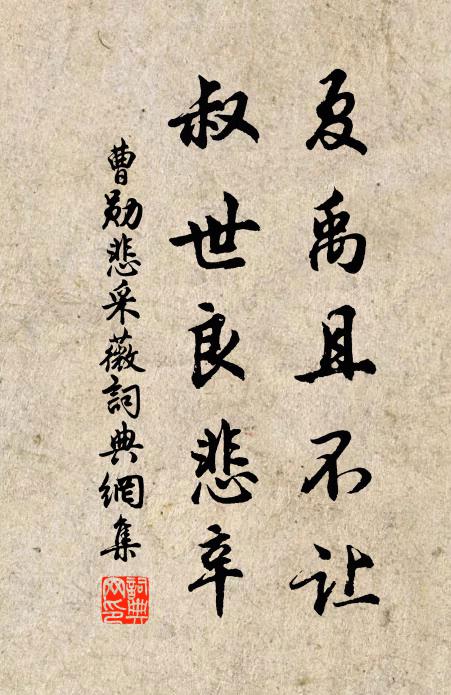 夏禹且不让
叔世良悲辛
曹勋悲采薇詞典網集
詞典网印